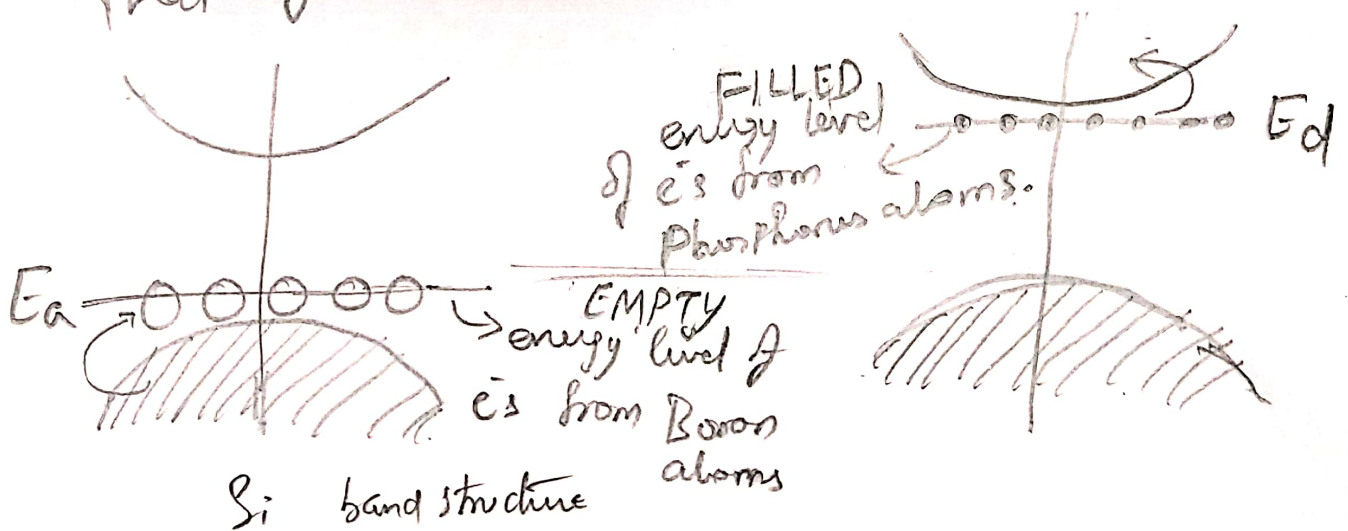 FILLED
energy level
of e's from
Phosphorus atoms.
Ed
Ea
EMPTY
energy level of
e's from Boron
atoms
Si band structure